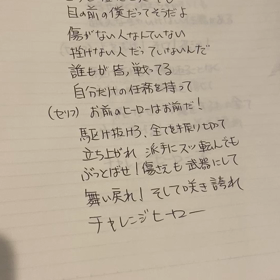 目の前の僕だってそうだよ
傷がない人なんていない
挫けない人だっていないんだ
誰もが皆、戦ってる
自分だけの任務を持って
(セリフ) お前のヒーローはお前だ!
駆け抜けろ、全てを振り切って
立ち上がれ 派手にスッ転んでも
ぶっとばせ!傷さえも武器にして
舞い戻れ!そして咲き誇れ
チャレンジヒーロー